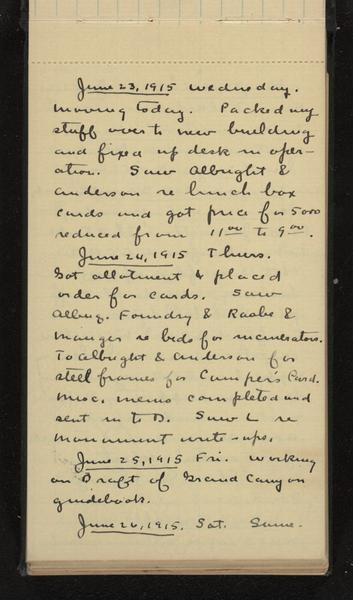 June 23, 1915 Wednesday.
Moving today. Packed my
stuff over to new building
and fixed up desk in oper-
ation. Saw Albright &
Anderson re lunch box
cards and got price for 5000
reduced from 11 00 to 9 00.
June 24, 1915 Thurs.
Got allotment & placed
order for cards. Saw
Albuq. Foundry & Raabe &
Mauger re bids for incinerators.
To Albright & Anderson for
steel frames for Camper's Card.
Misc. memo completed and
sent in to D. Saw L re
monument write-ups.
June 25, 1915 Fri. Working
on Draft of Grand Canyon
guidebook.
June 26, 1915. Sat. Same.